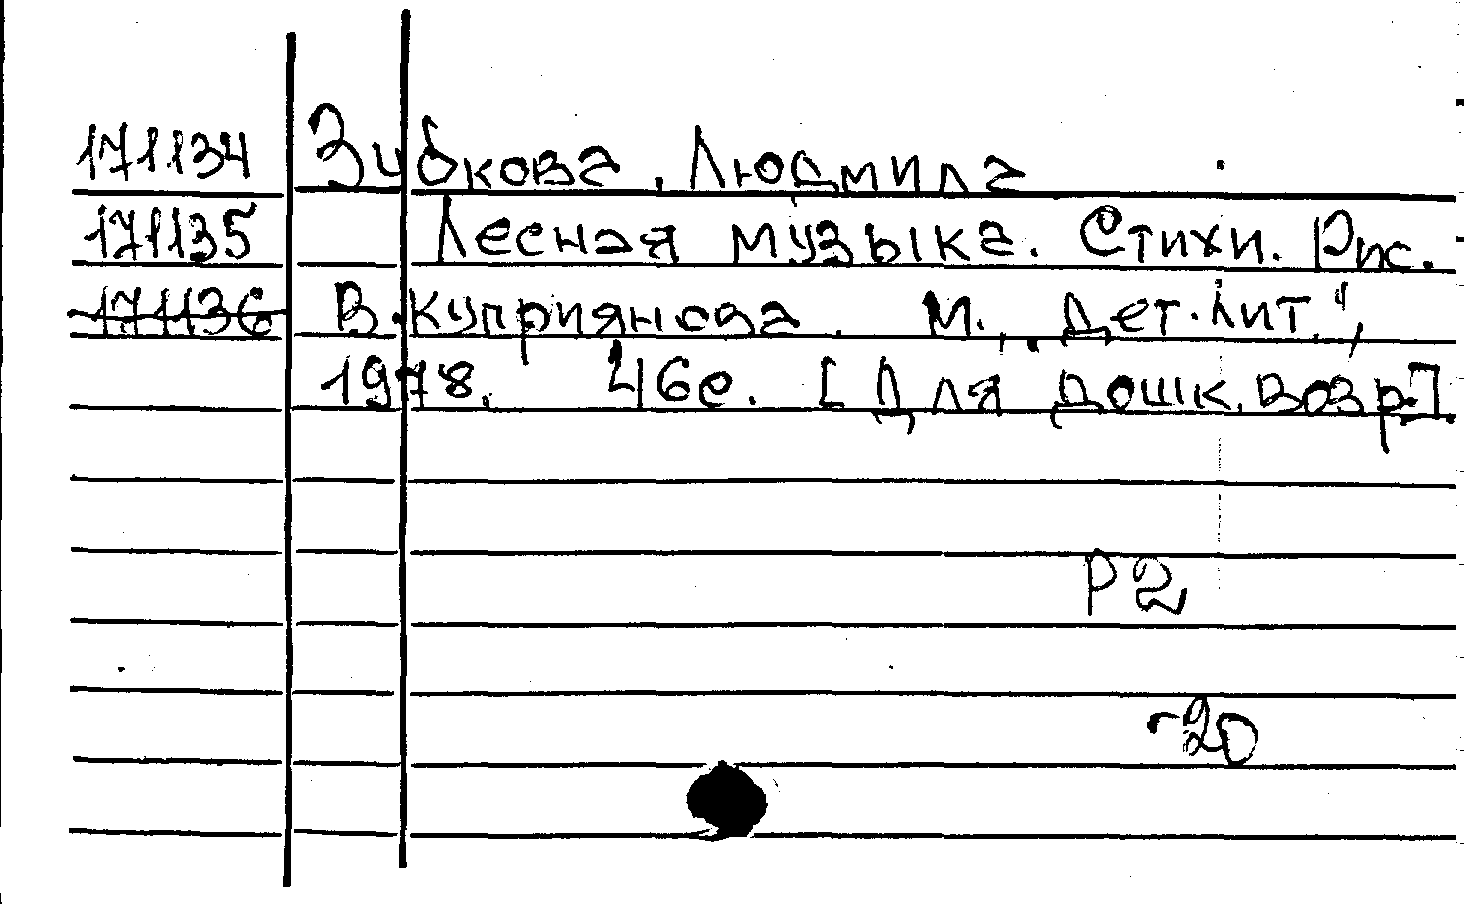 171134 Зубкова, Людмила
171135 Лесная музыка. Стихи. Рис.
171136 В. Куприянова. М., „Дет. лит.",
1978. 46с. [Для дошк. возр.].
Р2
-20